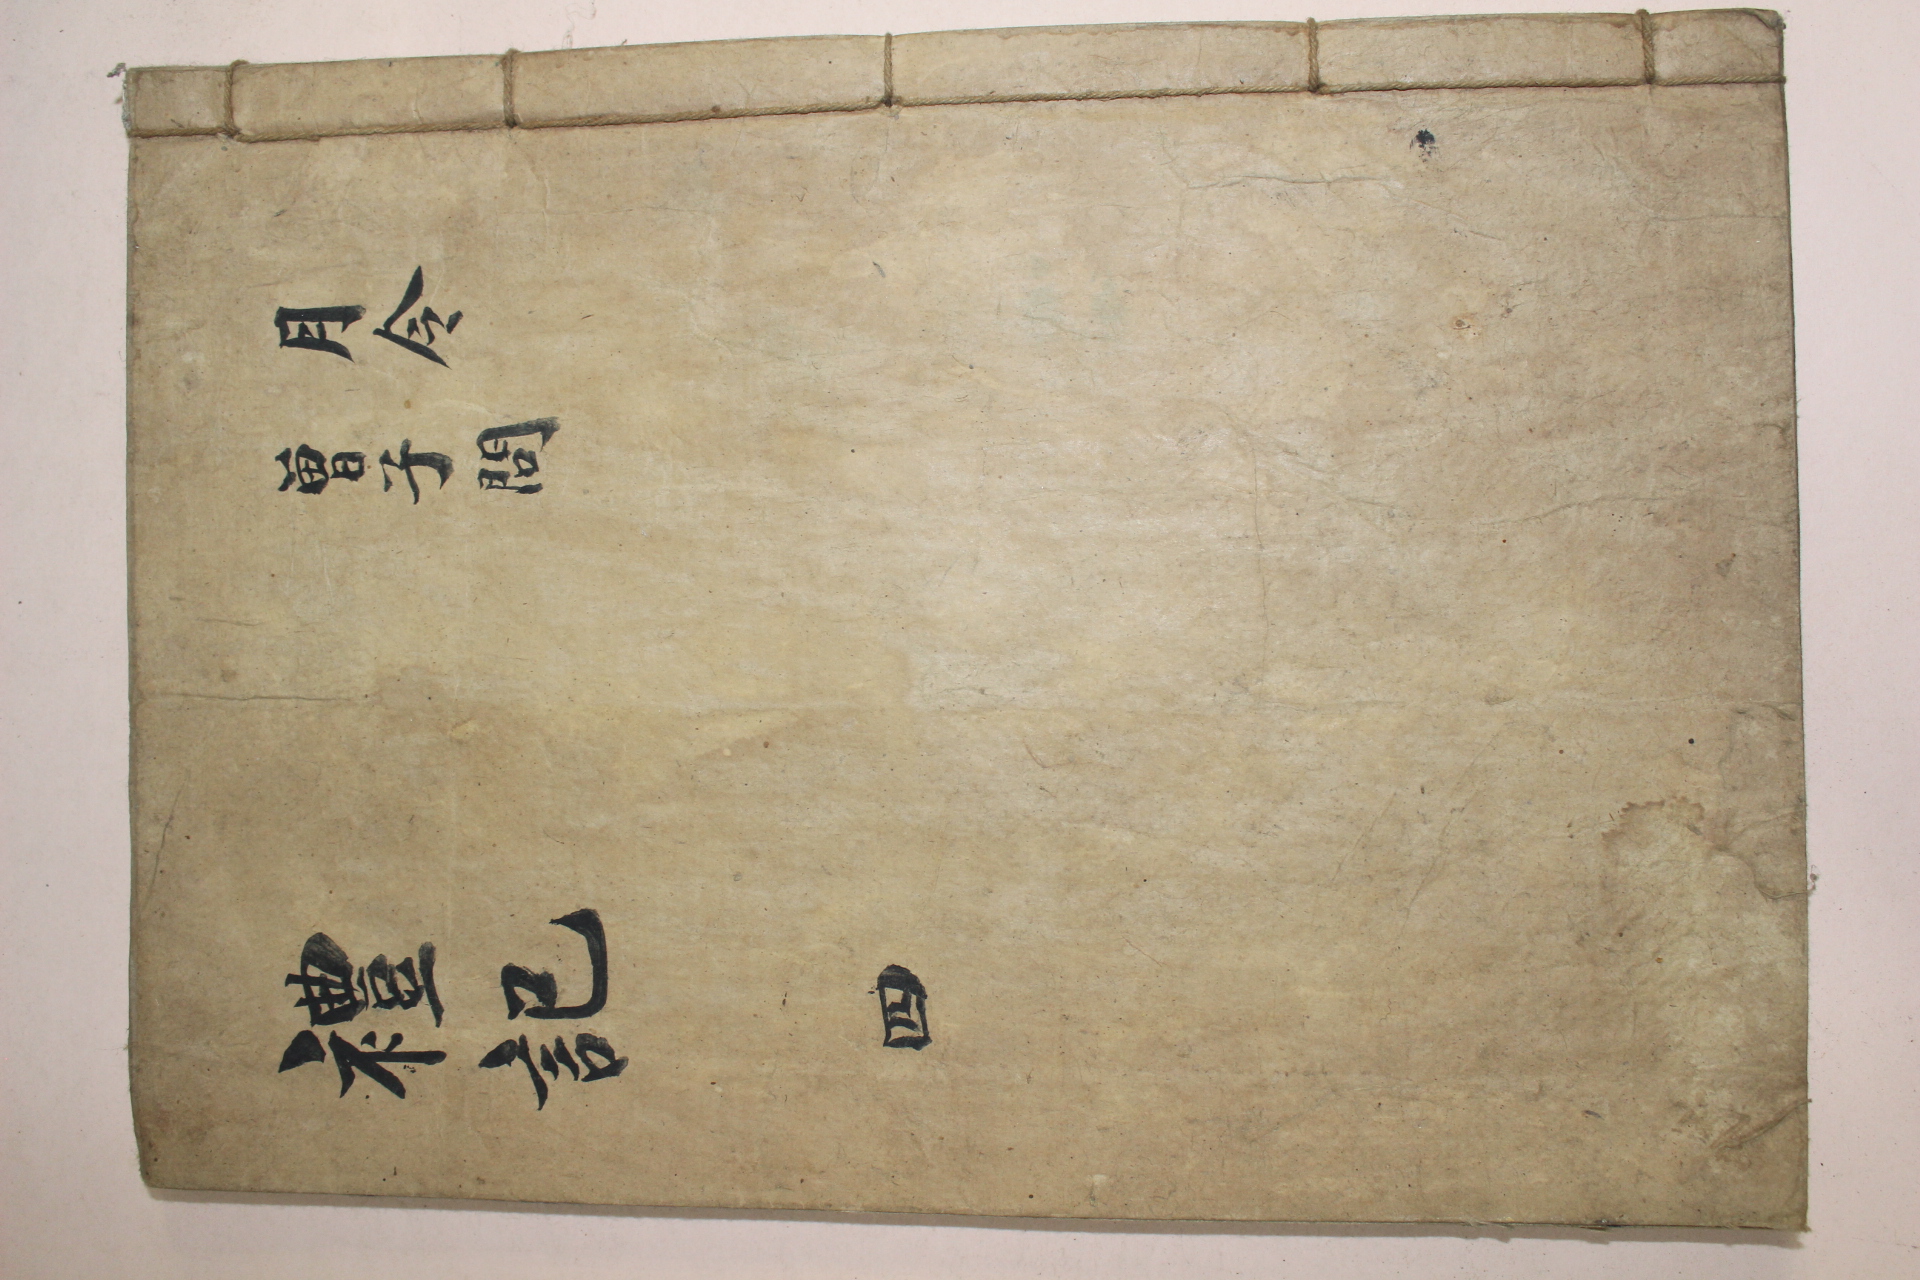 禮記 四
月令
曾子問